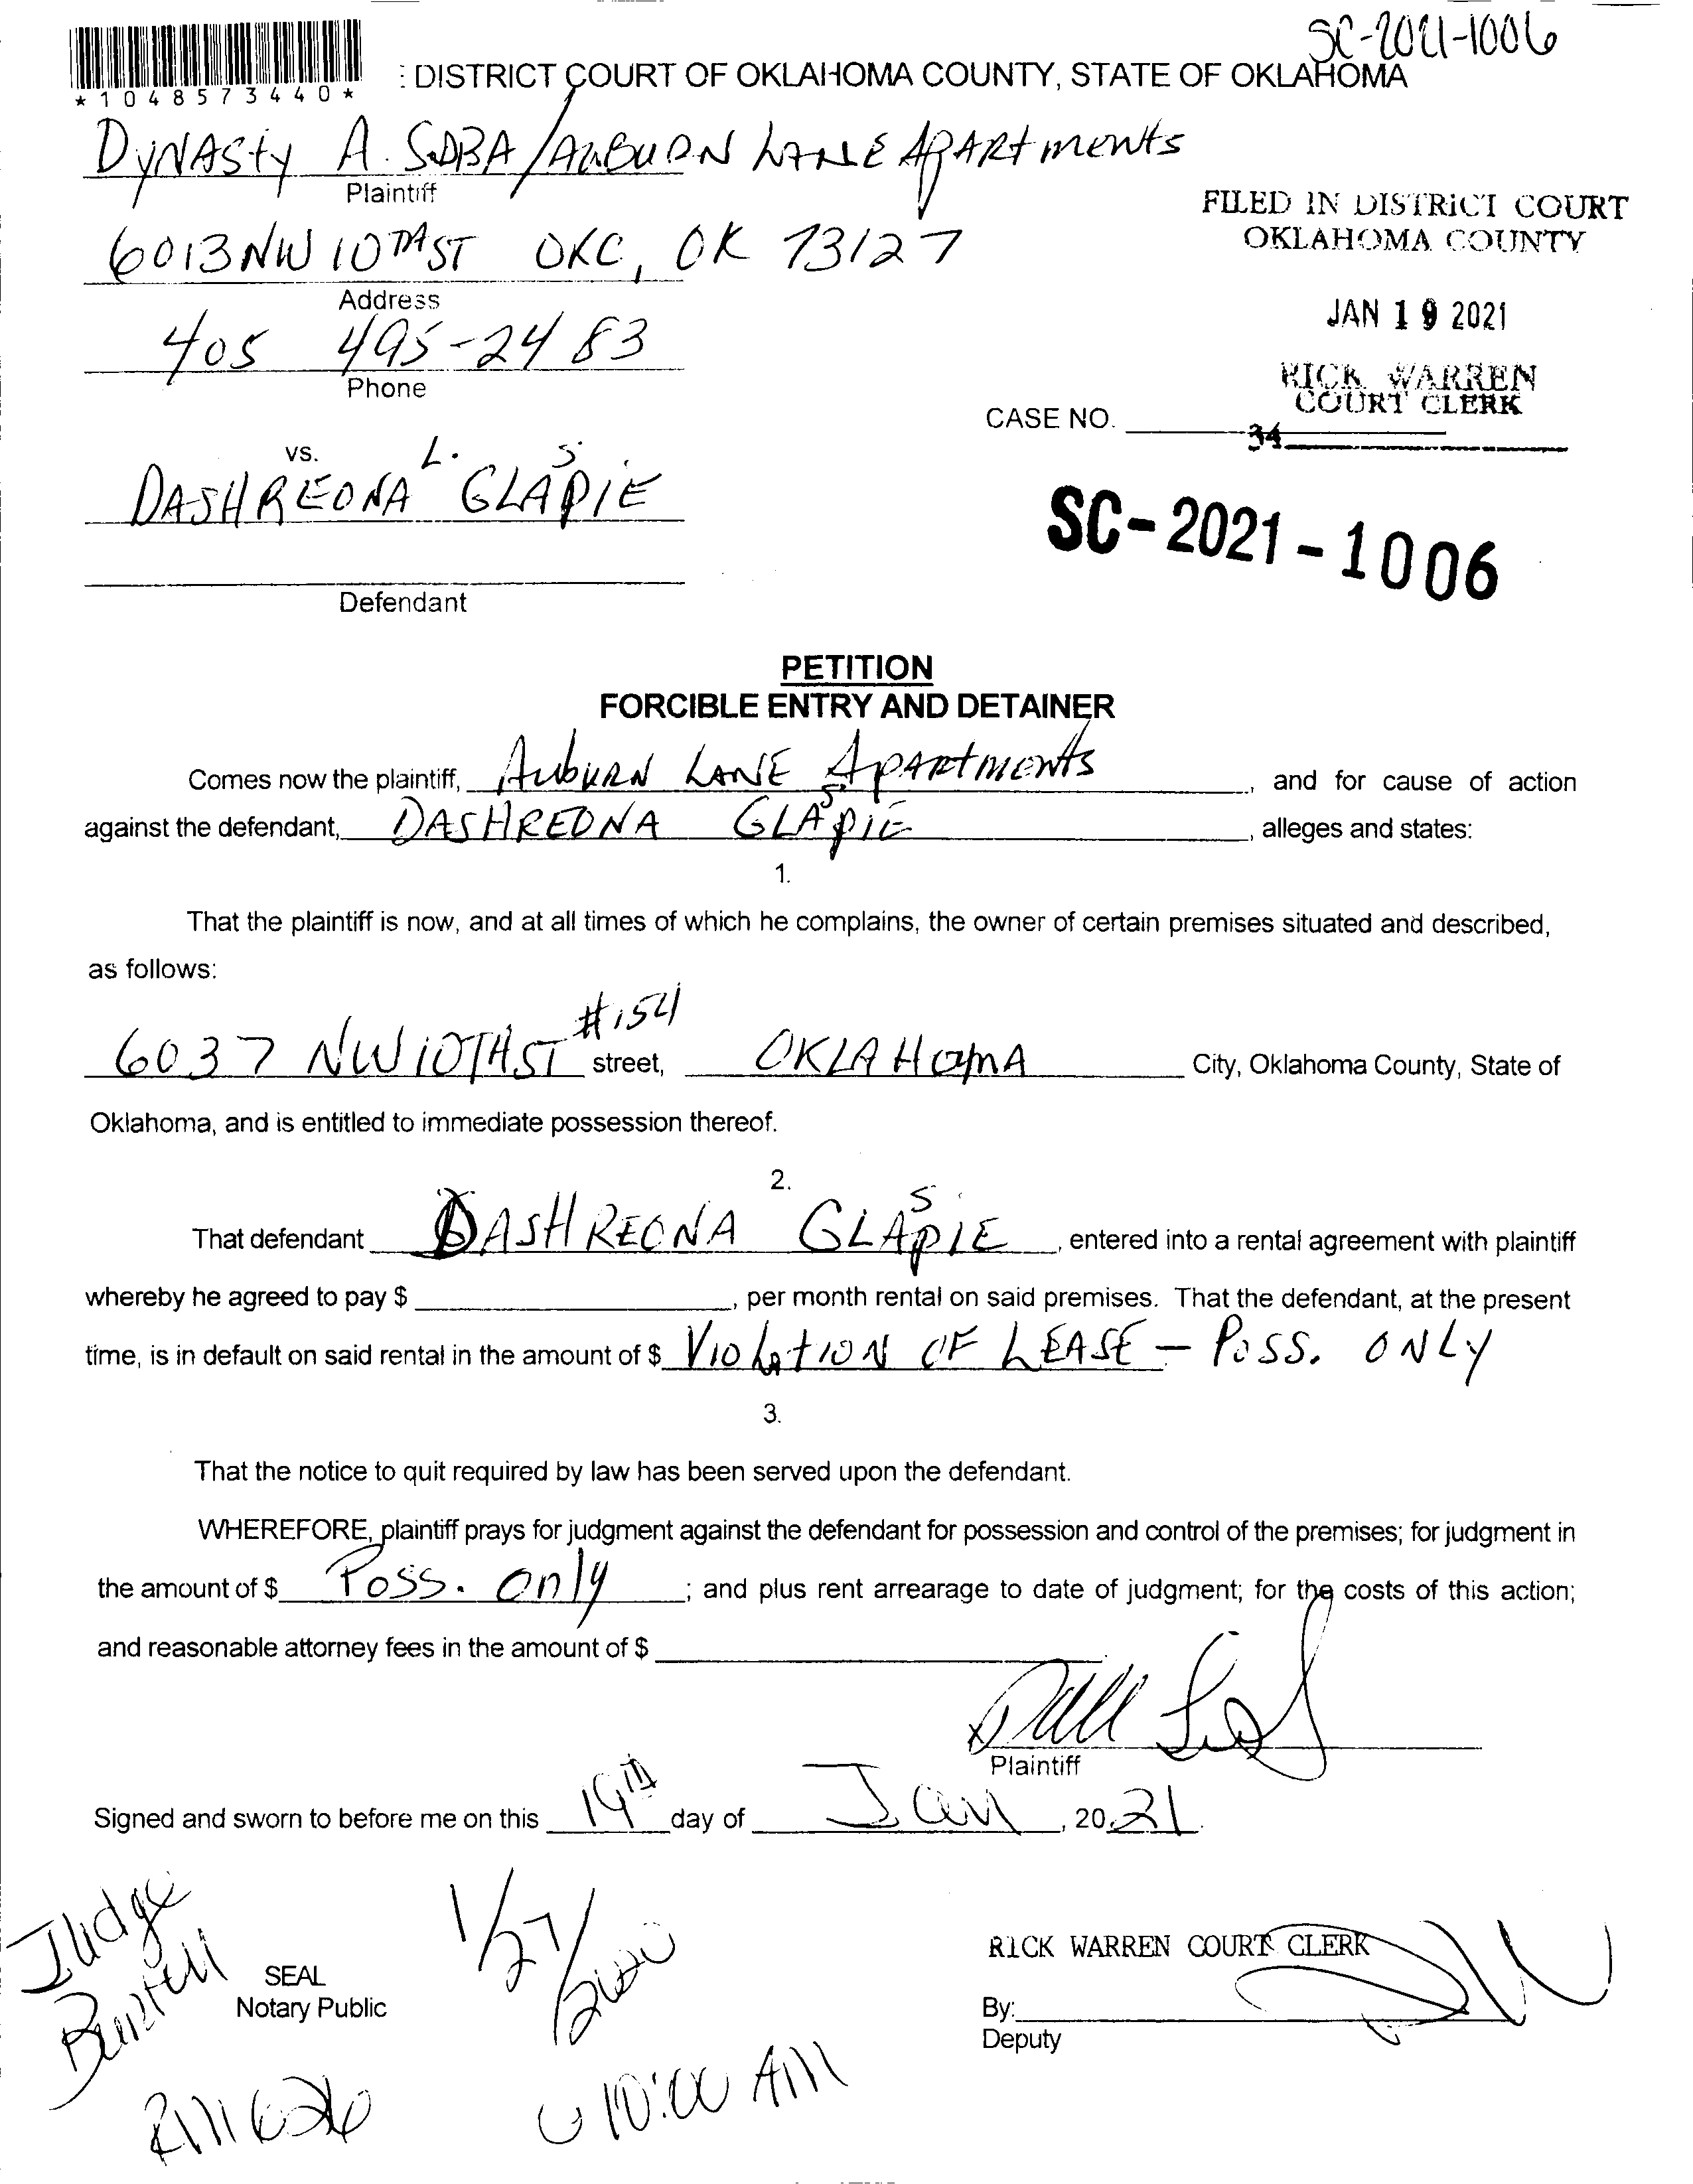 SC-2021-1006
*1048573440*
: DISTRICT COURT OF OKLAHOMA COUNTY, STATE OF OKLAHOMA
DYNASty A. S DBA/AuBURN LANE APARtments
Plaintiff
FILED IN DISTRICT COURT
OKLAHOMA COUNTY
6013 NW 10TH ST OKC, OK 73127
Address
JAN 19 2021
405 495-2483
Phone
RICK WARREN
COURT CLERK
CASE NO.
34
vs.
DASHREONA L. GLASPIE
SC-2021-1006
Defendant
PETITION
FORCIBLE ENTRY AND DETAINER
Comes now the plaintiff, AubURN LANE Apartments, and for cause of action
against the defendant, DASHREONA GLASPIE, alleges and states:
1.
That the plaintiff is now, and at all times of which he complains, the owner of certain premises situated and described,
as follows:
6037 NW 10TH ST #154 street, OKLAHOMA City, Oklahoma County, State of
Oklahoma, and is entitled to immediate possession thereof.
2.
That defendant DASHREONA GLASPIE, entered into a rental agreement with plaintiff
whereby he agreed to pay $, per month rental on said premises. That the defendant, at the present
time, is in default on said rental in the amount of $ VIOLATION OF LEASE - Poss. ONLY
3.
That the notice to quit required by law has been served upon the defendant.
WHEREFORE, plaintiff prays for judgment against the defendant for possession and control of the premises; for judgment in
the amount of $ Poss. Only; and plus rent arrearage to date of judgment; for the costs of this action;
and reasonable attorney fees in the amount of $
Plaintiff
Signed and sworn to before me on this 19th day of Jan, 2021.
Judge
1/27/2020
RICK WARREN COURT CLERK
SEAL
Notary Public
By:
Deputy
RM 626
10:00 AM